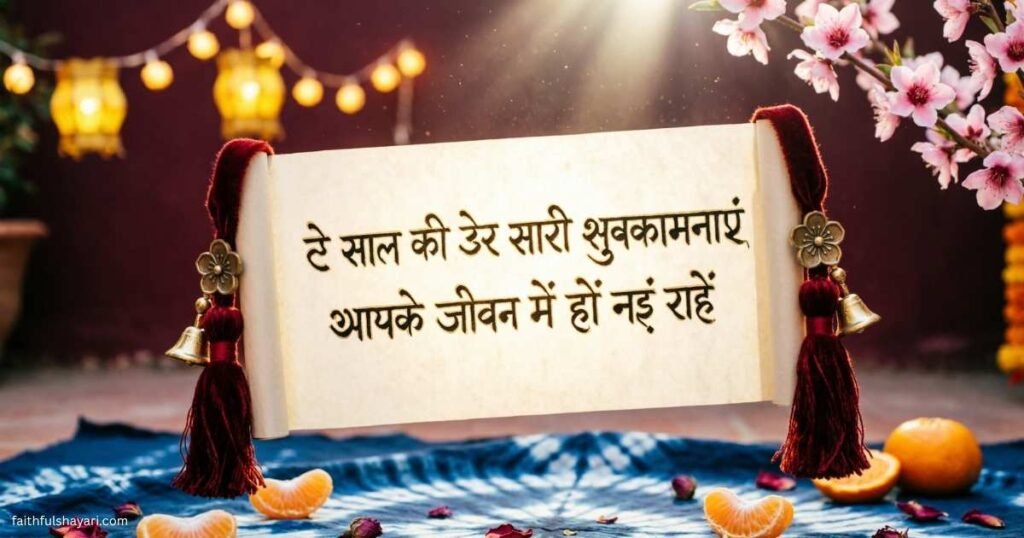 टे साल की डेर सारी शुवकामनाएं
आयके जीवन में हों नइं राहें
faithfulshayari.com